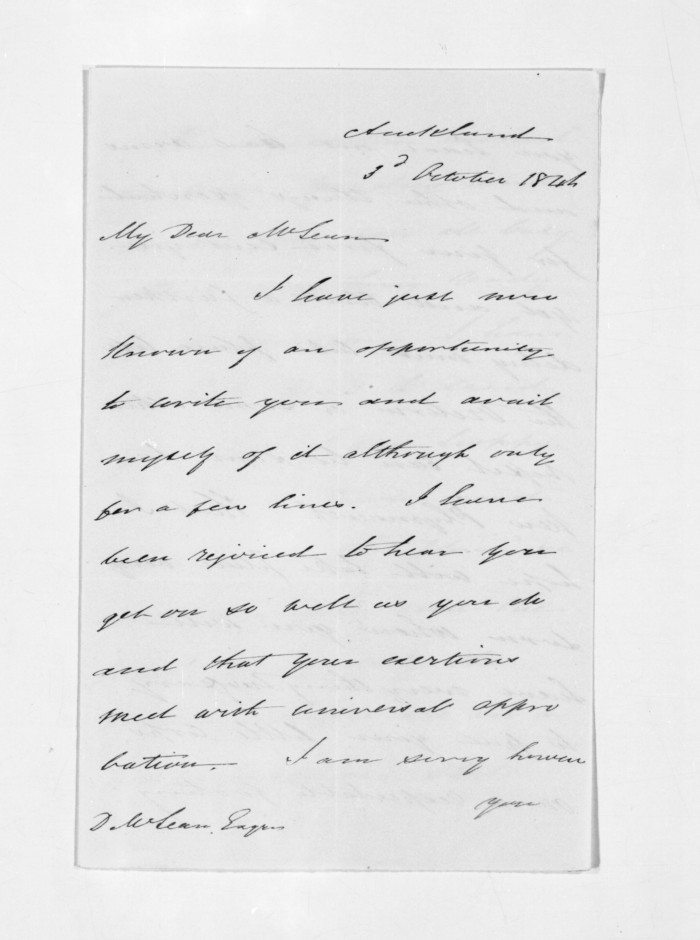 Auckland
3d October 1844
My Dear McLean
I have just now
known of an opportunity
to write you and avail
myself of it although only
for a few lines. I have
been rejoiced to hear you
get on so well as you do
and that your exertions
meet with universal appro
bation. I am sorry howev
you
D. McLean, Esqre